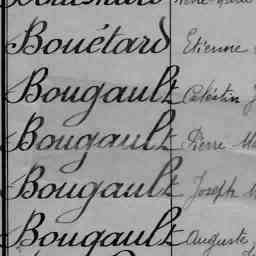 Bouétard Etienne
Bougault Célestin J
Bougault Pierre Ma
Bougault Joseph M
Bougault Auguste